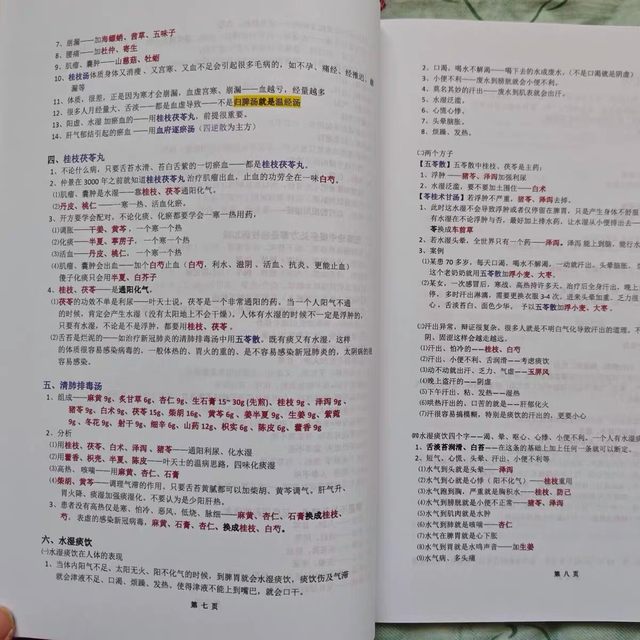 7、崩漏——加海螵蛸、茜草、五味子
8、腰痛——加杜仲、寄生
9、肌瘤、囊肿——山慈菇、牡蛎
10、桂枝汤体质身体又消瘦、又宫寒、又血不足会引起很多毛病的,如不孕、痛经、经推迟、崩
漏等
11、体质,很差,正是因为寒才会崩漏,血虚宫寒、崩漏——血越亏,经量越多
12、很多人月经量大、舌淡——都是血虚导致——不是归脾汤就是温经汤
13、阳虚、水湿 加瘀血的——用桂枝茯苓丸,前提很重要。
14、肝气郁结引起的瘀血 ——用血府逐瘀汤(四逆散为主方)
四、桂枝茯苓丸
1、不论什么病,只要舌苔水滑、苔白舌紫的一切瘀血——都是桂枝茯苓丸。
2、仲景在3000年之前就知道桂枝茯苓丸治疗肌瘤出血,止血的功劳全在一味白芍。
⑴肌瘤、囊肿是水湿——意桂枝、茯苓通阳化气。
⑵丹皮、桃仁 ——一寒一热、活血化瘀。
3、开方要学会配对,不论化痰、化瘀都要学会一寒一热用药,
⑴调胀——干姜、黄芩,一个寒一个热
⑵化痰——半夏、葶苈子,一个寒一个热
⑶活血——丹皮、桃仁,一个寒一个热
⑷肌瘤、囊肿会出血——加个白芍止血(白芍,利水、滋阴、活血、抗炎、更能止血)
傻子化痰只会用半夏、白芥子
4、桂枝、茯苓——是通阳化气,
⑴茯苓的功效不单是利尿——叶天士说,茯苓是一个非常通阳的药,当一个人阳气不通
的时候,肯定会产生水湿(没有太阳地上不会干燥)。人体有水湿的时候不一定是浮肿的,
只要有水湿,不论是不是浮肿,都要用桂枝、茯苓。
⑵舌苔是烂泥的——如治疗新冠炎的清肺排毒汤中用五苓散,既有痰又有水湿,这样
的体质很容易感染病毒的,一般体热的、胃火的重的、是不容易感染新冠肺炎的,太阴病的很
容易感染。
五、清肺排毒汤
1、组成——麻黄9g、炙甘草6g、杏仁9g、生石膏15~30g(先煎)、桂枝9g、泽泻9g、
猪苓9g、白术9g、茯苓15g、柴胡16g、黄芩6g、姜半夏9g、生姜9g、紫菀
9g、冬花9g、射干9g、细辛6g、山药12g、枳实6g、陈皮6g、藿香9g
2、分析
⑴用桂枝、茯苓、白术、泽泻、猪苓——通阳利尿、化水湿
⑵用藿香、枳壳、半夏、陈皮——叶天士的温病思路,四味化痰湿
⑶高热、咳喘——用麻黄、杏仁、石膏
⑷柴胡、黄芩——调理气滞的作用。只要舌苔黄腻都可以加柴胡、黄芩调气、肝气升、
胃火降、痰湿加强痰湿化、不要认为是少阳肝热。
3、患者没有高热仅是寒、怕冷、恶风、低烧、脉细——麻黄、杏仁、石膏换成桂枝、白
芍。表虚的感染新冠病毒,麻黄、石膏、杏仁、换成桂枝、白芍。
六、水湿痰饮
㈠水湿痰饮在人体的表现
1、当体内阳气不足、太阳无火、阳不化气的时候,到脾胃就会水湿痰饮,痰饮伤及气滞
就会津液不足、口渴、烦躁、发热,使得津液不能上到嘴巴,就会口干。
第 七 页
2、口渴、喝水不解渴——喝下去的水成废水,(不是口渴就是阴虚)
3、小便不利——废水无法到膀胱就会小便不利。
4、莫名其妙的汗出——废水到肌表就会出汗。
5、水湿泛滥。
6、心慌心悸。
7、头晕脑胀。
8、烦躁、发热。
㈡两个方子
【五苓散】五苓散中桂枝、茯苓是主药:
1、浮肿——猪苓、泽泻加强利尿
2、水湿泛滥,要不要加土围住——白术
【苓桂术甘汤】若浮肿不严重,猪苓、泽泻去掉。
1、此时这水湿不会导致浮肿或者仅停留在脾胃,只是产生身体不舒服
有水湿在不论浮肿与否,最好加上排水药,让水湿从小便排出去——
苓换成车前草
2、若水湿头晕,全世界只有一个药——泽泻。泽泻能上到脑,能行水
3、案例
⑴某患70多岁,每天口渴,喝水不解渴,一动就汗出,头晕脑胀,
这个老奶奶就用五苓散加浮小麦、大枣。
⑵某女,一次感冒后,寒战、高热持续许多天,治疗后全身汗出,晚上
停,多时汗出淋漓,需要更换衣服3-4次,进来头晕加重,乏力
心,舌淡苔白、面色少华。 予以五苓散加浮小麦、大枣。
㈢汗出异常,辩证很复杂,很多人就是不明白气化导致汗出的道理,不
阴、固涩这样会越走越远。
⑴汗出、怕冷的——桂枝、白芍
⑵汗出、小便不利、舌润滑——考虑痰饮
⑶动不动就出汗、乏力、气虚——玉屏风
⑷晚上盗汗的——阴虚
⑸下午汗出、粘、发热——湿热
⑹哄热汗出的、口苦的就是——肝郁化火
⑺汗很容易搞模糊,特别是痰饮的汗出,更要小心
㈣水湿痰饮四个字——渴、晕、呕心、心悸、小便不利。一个人有水湿
1、舌淡苔润滑、白苔——在这条的基础上加上任何一条就可以断定。
2、短气、心慌、头晕、汗出、小便不利等
⑴水气到头就是头晕——泽泻
⑵水气到就在心是心悸(阳不化气)——桂枝重用
⑶水气跑到胸,严重就是胸积水——桂枝、防己
⑷水气到膀胱就是小便不正常——猪苓、泽泻
⑸水气到肌肉就是水肿
⑹水气到肺就是咳喘——杏仁
⑺水气在脾胃就是心下胀
⑻水气到胃就是水鸣声音——加生姜
⑼水气病,多头痛
第 八 页